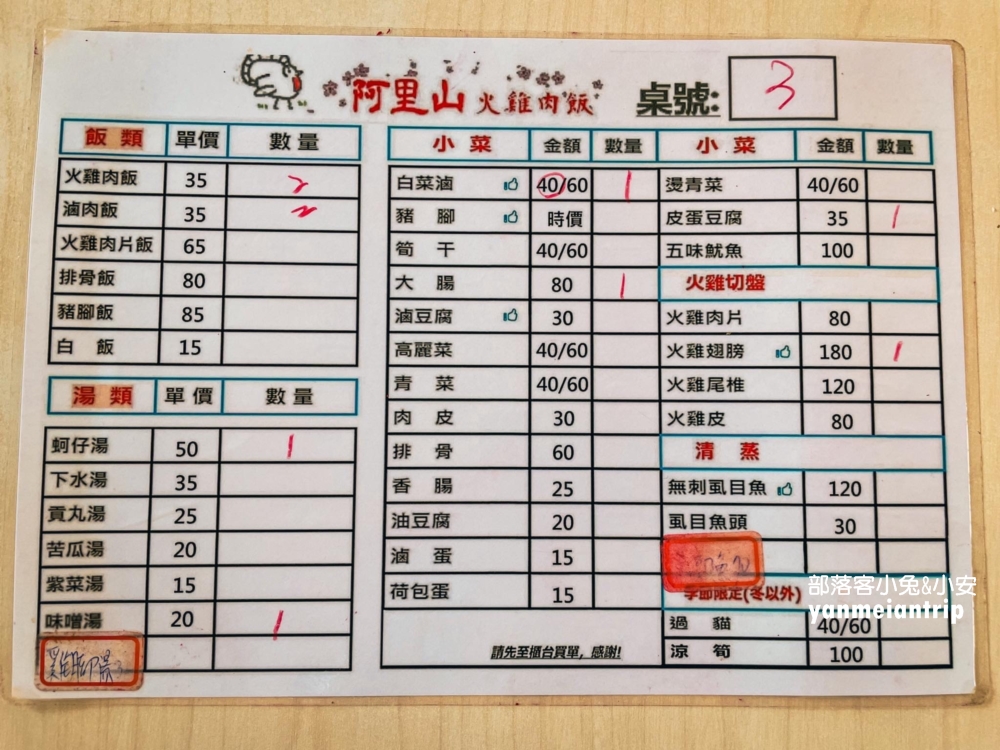 阿里山 火雞肉飯 桌號: 3
飯類 單價 數量
火雞肉飯 35 2
滷肉飯 35
火雞肉片飯 65
排骨飯 80
豬腳飯 85
白飯 15
湯類 單價 數量
蚵仔湯 50 1
下水湯 35
貢丸湯 25
苦瓜湯 20
紫菜湯 15
味噌湯 20 1
小菜 金額 數量
白菜滷 40/60 1
豬腳 時價
筍干 40/60
大腸 80 1
滷豆腐 30
高麗菜 40/60
青菜 40/60
肉皮 30
排骨 60
香腸 25
油豆腐 20
滷蛋 15
荷包蛋 15
請先至櫃台買單,感謝!
小菜 金額 數量
燙青菜 40/60
皮蛋豆腐 35 1
五味魷魚 100
火雞切盤
火雞肉片 80
火雞翅膀 180 1
火雞尾椎 120
火雞皮 80
清蒸
無刺虱目魚 120
虱目魚頭 30
季節限定(冬以外)
過貓 40/60
涼筍 100
部落客小兔&小安
yanmeiantrip